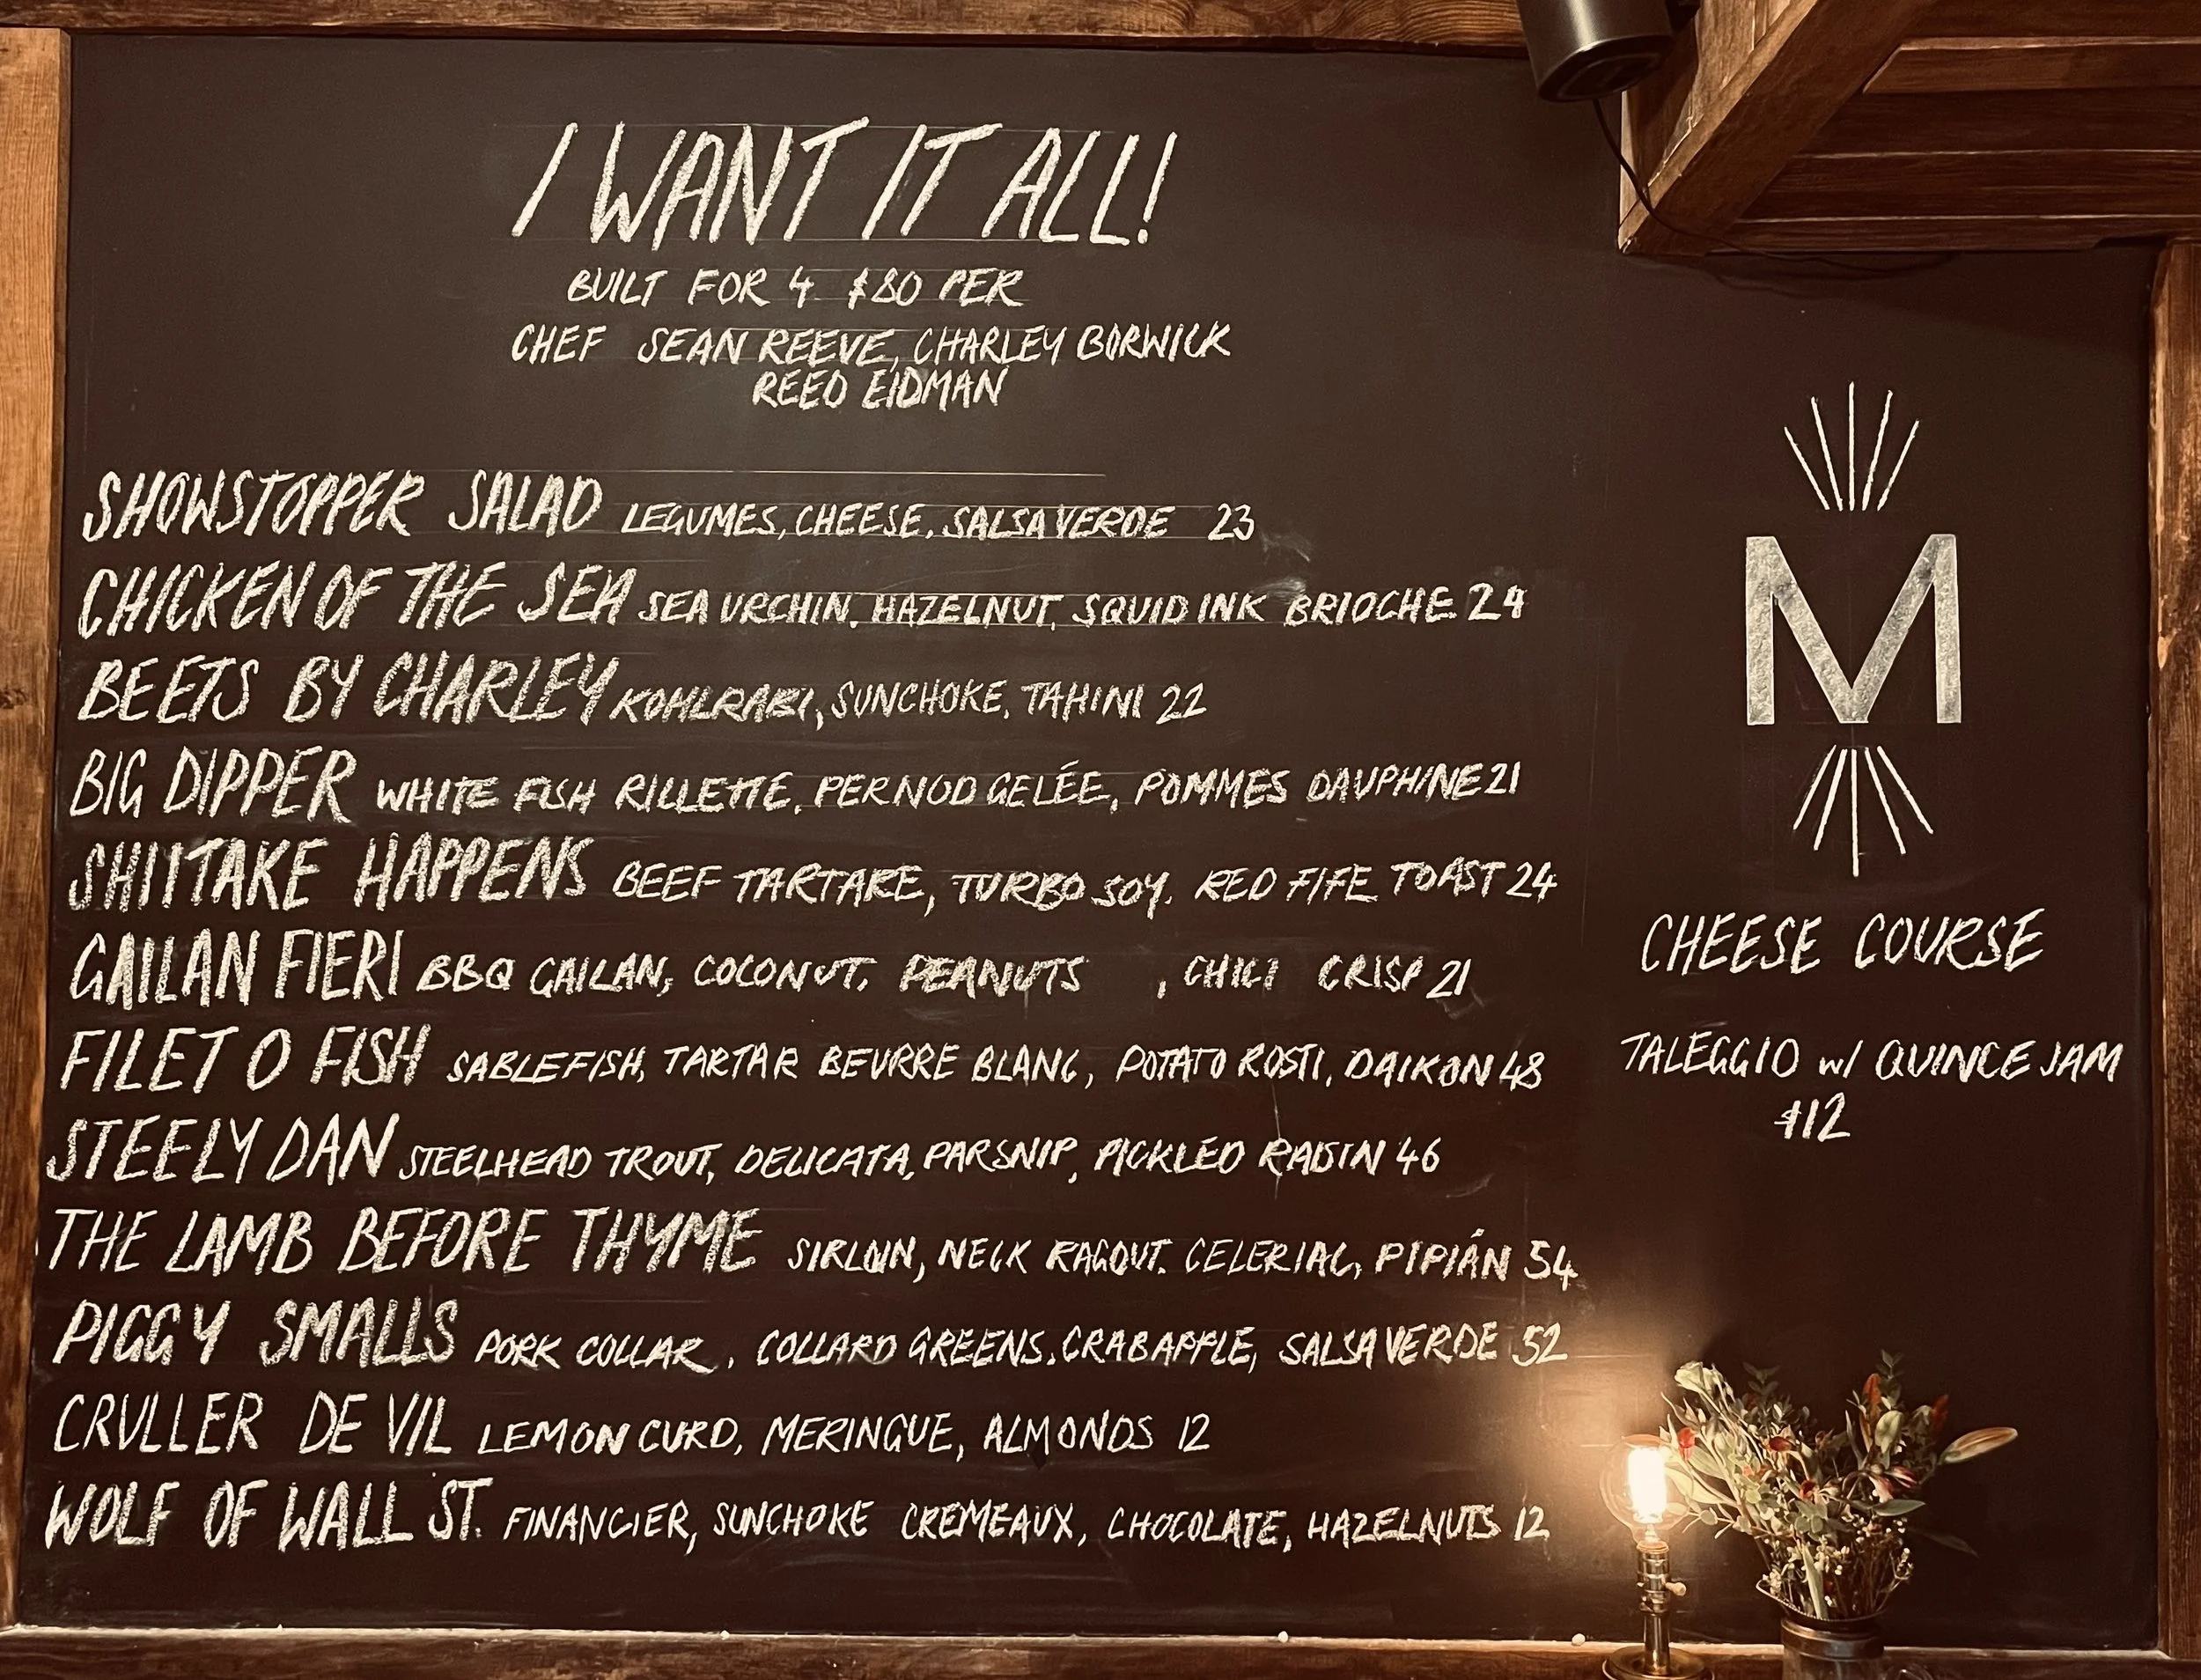 I WANT IT ALL!
BUILT FOR 4 $80 PER
CHEF SEAN REEVE, CHARLEY BORWICK
REED EIDMAN
SHOWSTOPPER SALAD LEGUMES, CHEESE, SALSA VERDE 23
CHICKEN OF THE SEA SEA URCHIN, HAZELNUT, SQUID INK BRIOCHE 24
BEETS BY CHARLEY KOHLRABI, SUNCHOKE, TAHINI 22
BIG DIPPER WHITE FISH RILLETTE, PERNOD GELÉE, POMMES DAUPHINE 21
SHIITAKE HAPPENS BEEF TARTARE, TURBO SOY, RED FIFE TOAST 24
GAILAN FIERI BBQ GAILAN, COCONUT, PEANUTS , CHILI CRISP 21
FILET O FISH SABLEFISH, TARTAR BEURRE BLANC, POTATO ROSTI, DAIKON 48
STEELY DAN STEELHEAD TROUT, DELICATA, PARSNIP, PICKLED RAISIN 46
THE LAMB BEFORE THYME SIRLOIN, NECK RAGOUT, CELERIAC, PIPIÁN 54
PIGGY SMALLS PORK COLLAR, COLLARD GREENS, CRABAPPLE, SALSA VERDE 52
CRULLER DE VIL LEMON CURD, MERINGUE, ALMONDS 12
WOLF OF WALL ST. FINANCIER, SUNCHOKE CREMEAUX, CHOCOLATE, HAZELNUTS 12
M
CHEESE COURSE
TALEGGIO w/ QUINCE JAM
$12